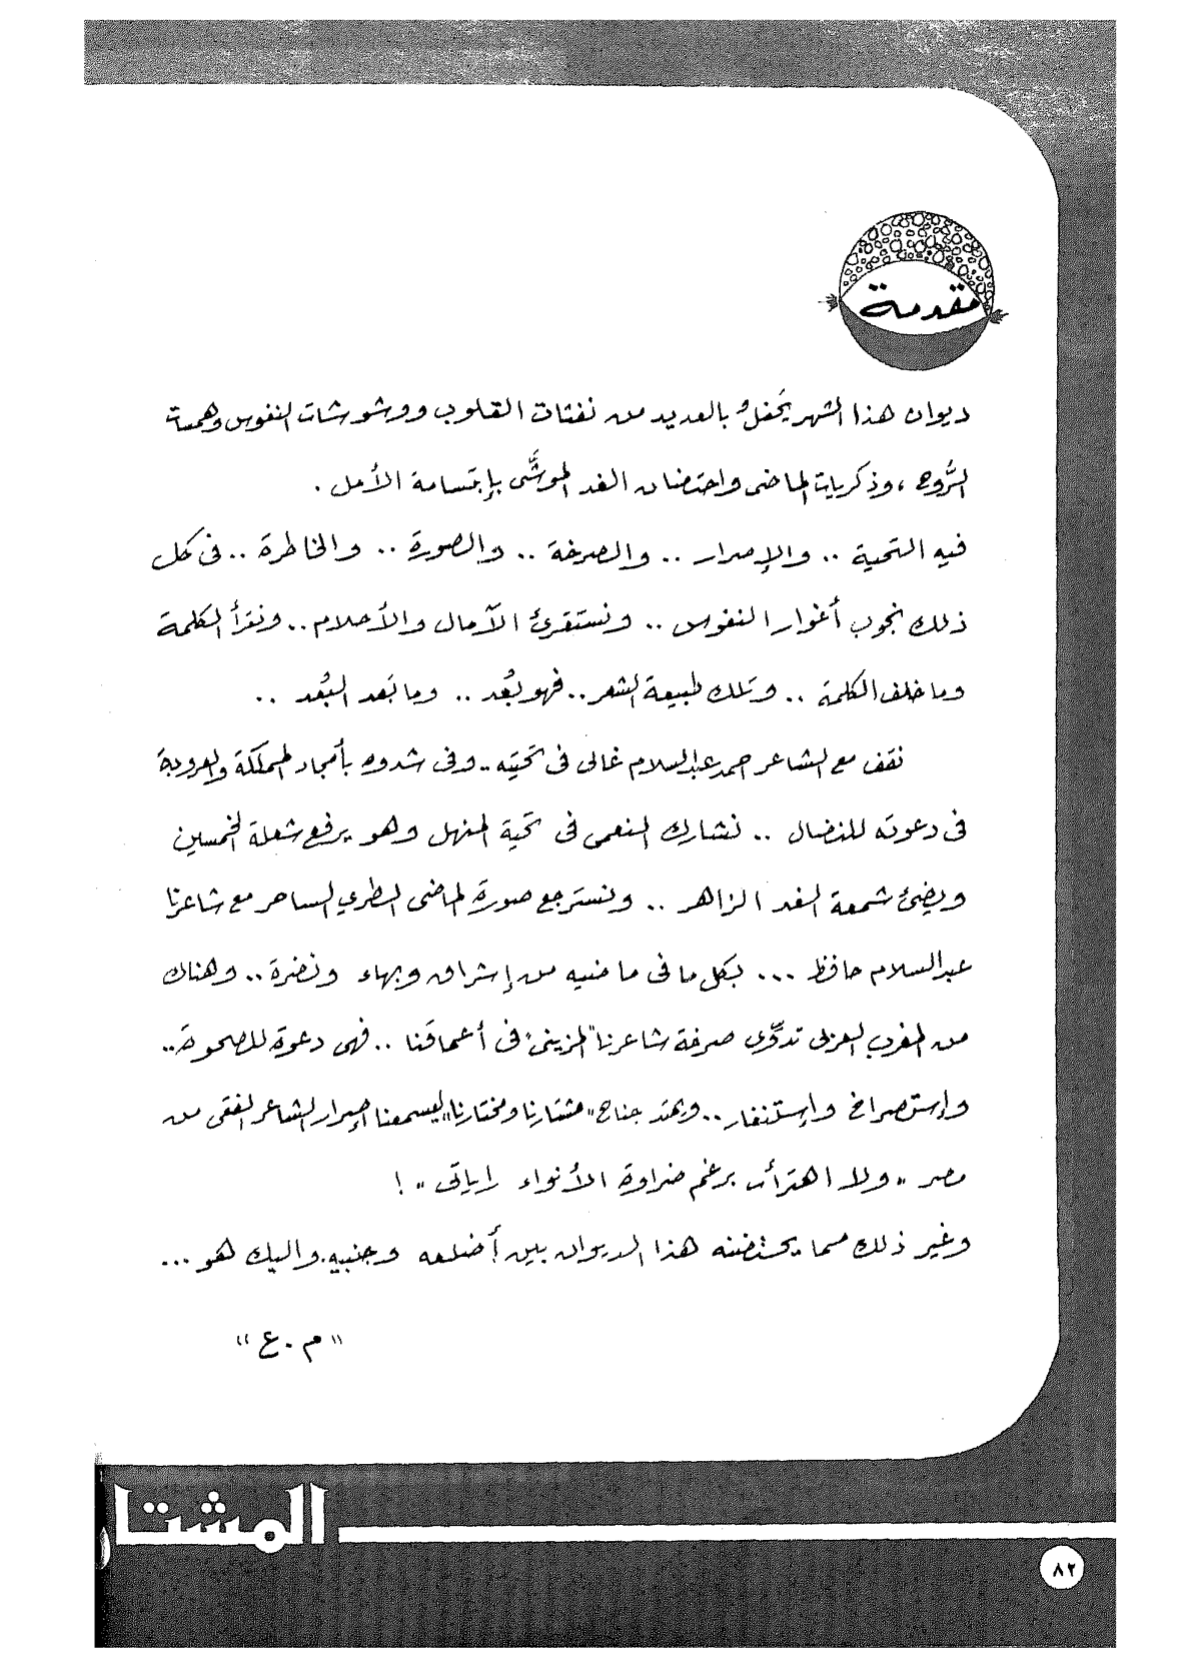 مقدمة
ديوان هذا الشهر يَحفلُ بالعديد من نفثات القلوب ووشوشات النفوس وهمسات
الرُّوح ، وذكريات الماضى واحتضان الغد الموشَّى بإبتسامة الأمل .
فيه التحية .. والإصرار .. والصرخة .. والصورة .. والخاطرة .. فى كل
ذلك نجوب أغوار النفوس .. ونستقرئ الآمال والأحلام .. ونقرأ الكلمة
وما خلف الكلمة .. وتلك طبيعة الشعر .. فهو بُعد .. وما بَعد البُعد ..
نقف مع الشاعر احمد عبدالسلام غالى فى تحيته .. وفى شدوه بأمجاد المملكة والعروبة
فى دعوته للنضال .. نشارك المنعمى فى تحية المنهل وهو يرفع شعلة الخمسين
ويضئ شمعة الغد الزاهر .. ونسترجع صورة الماضى الطري الساحر مع شاعرنا
عبدالسلام حافظ ... بكل ما فى ماضيه من إشراق وبهاء ونضرة .. وهناك
من المغرب العربى تدوِّى صرخة شاعرنا "المزينى" فى أعماقنا .. فهى دعوة للصحوة ..
وإستصراخ وإستنفار .. ويمتد جناح "مشتارنا ومختارنا" ليسمعنا إصرار الشاعر الفقى من
مصر " ولا اهترأت برغم ضراوة الأنواء راياتى " !
وغير ذلك مما يحتضنه هذا الديوان بين أضلعه وجنبيه. واليك هو ...
" م . ع "
المشتار
٨٢